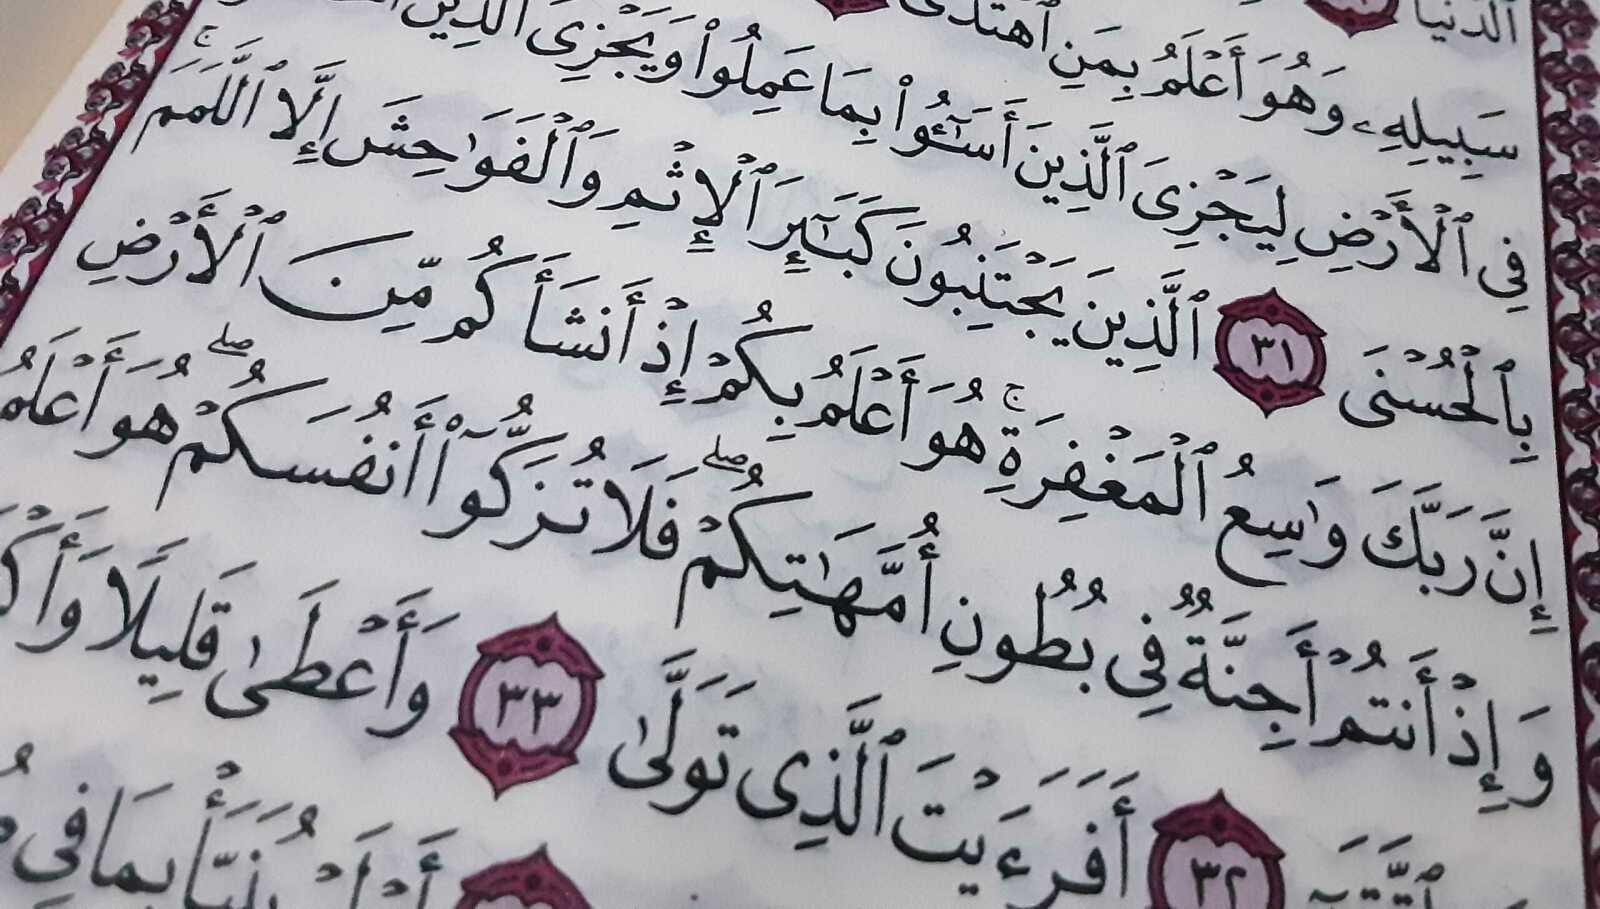 ٱلدُّنْيَا
سَبِيلِهِۦ وَهُوَ أَعْلَمُ بِمَنِ ٱهْتَدَىٰ
فِى ٱلْأَرْضِ لِيَجْزِىَ ٱلَّذِينَ أَسَٰٓـُٔوا۟ بِمَا عَمِلُوا۟ وَيَجْزِىَ ٱلَّذِينَ
بِٱلْحُسْنَى ٣١ ٱلَّذِينَ يَجْتَنِبُونَ كَبَٰٓئِرَ ٱلْإِثْمِ وَٱلْفَوَٰحِشَ إِلَّا ٱللَّمَمَ ۚ
إِنَّ رَبَّكَ وَٰسِعُ ٱلْمَغْفِرَةِ ۚ هُوَ أَعْلَمُ بِكُمْ إِذْ أَنشَأَكُم مِّنَ ٱلْأَرْضِ
وَإِذْ أَنتُمْ أَجِنَّةٌ فِى بُطُونِ أُمَّهَٰتِكُمْ ۖ فَلَا تُزَكُّوٓا۟ أَنفُسَكُمْ ۖ هُوَ أَعْلَمُ
٣٢ أَفَرَءَيْتَ ٱلَّذِى تَوَلَّىٰ ٣٣ وَأَعْطَىٰ قَلِيلًا
بِمَا فِى